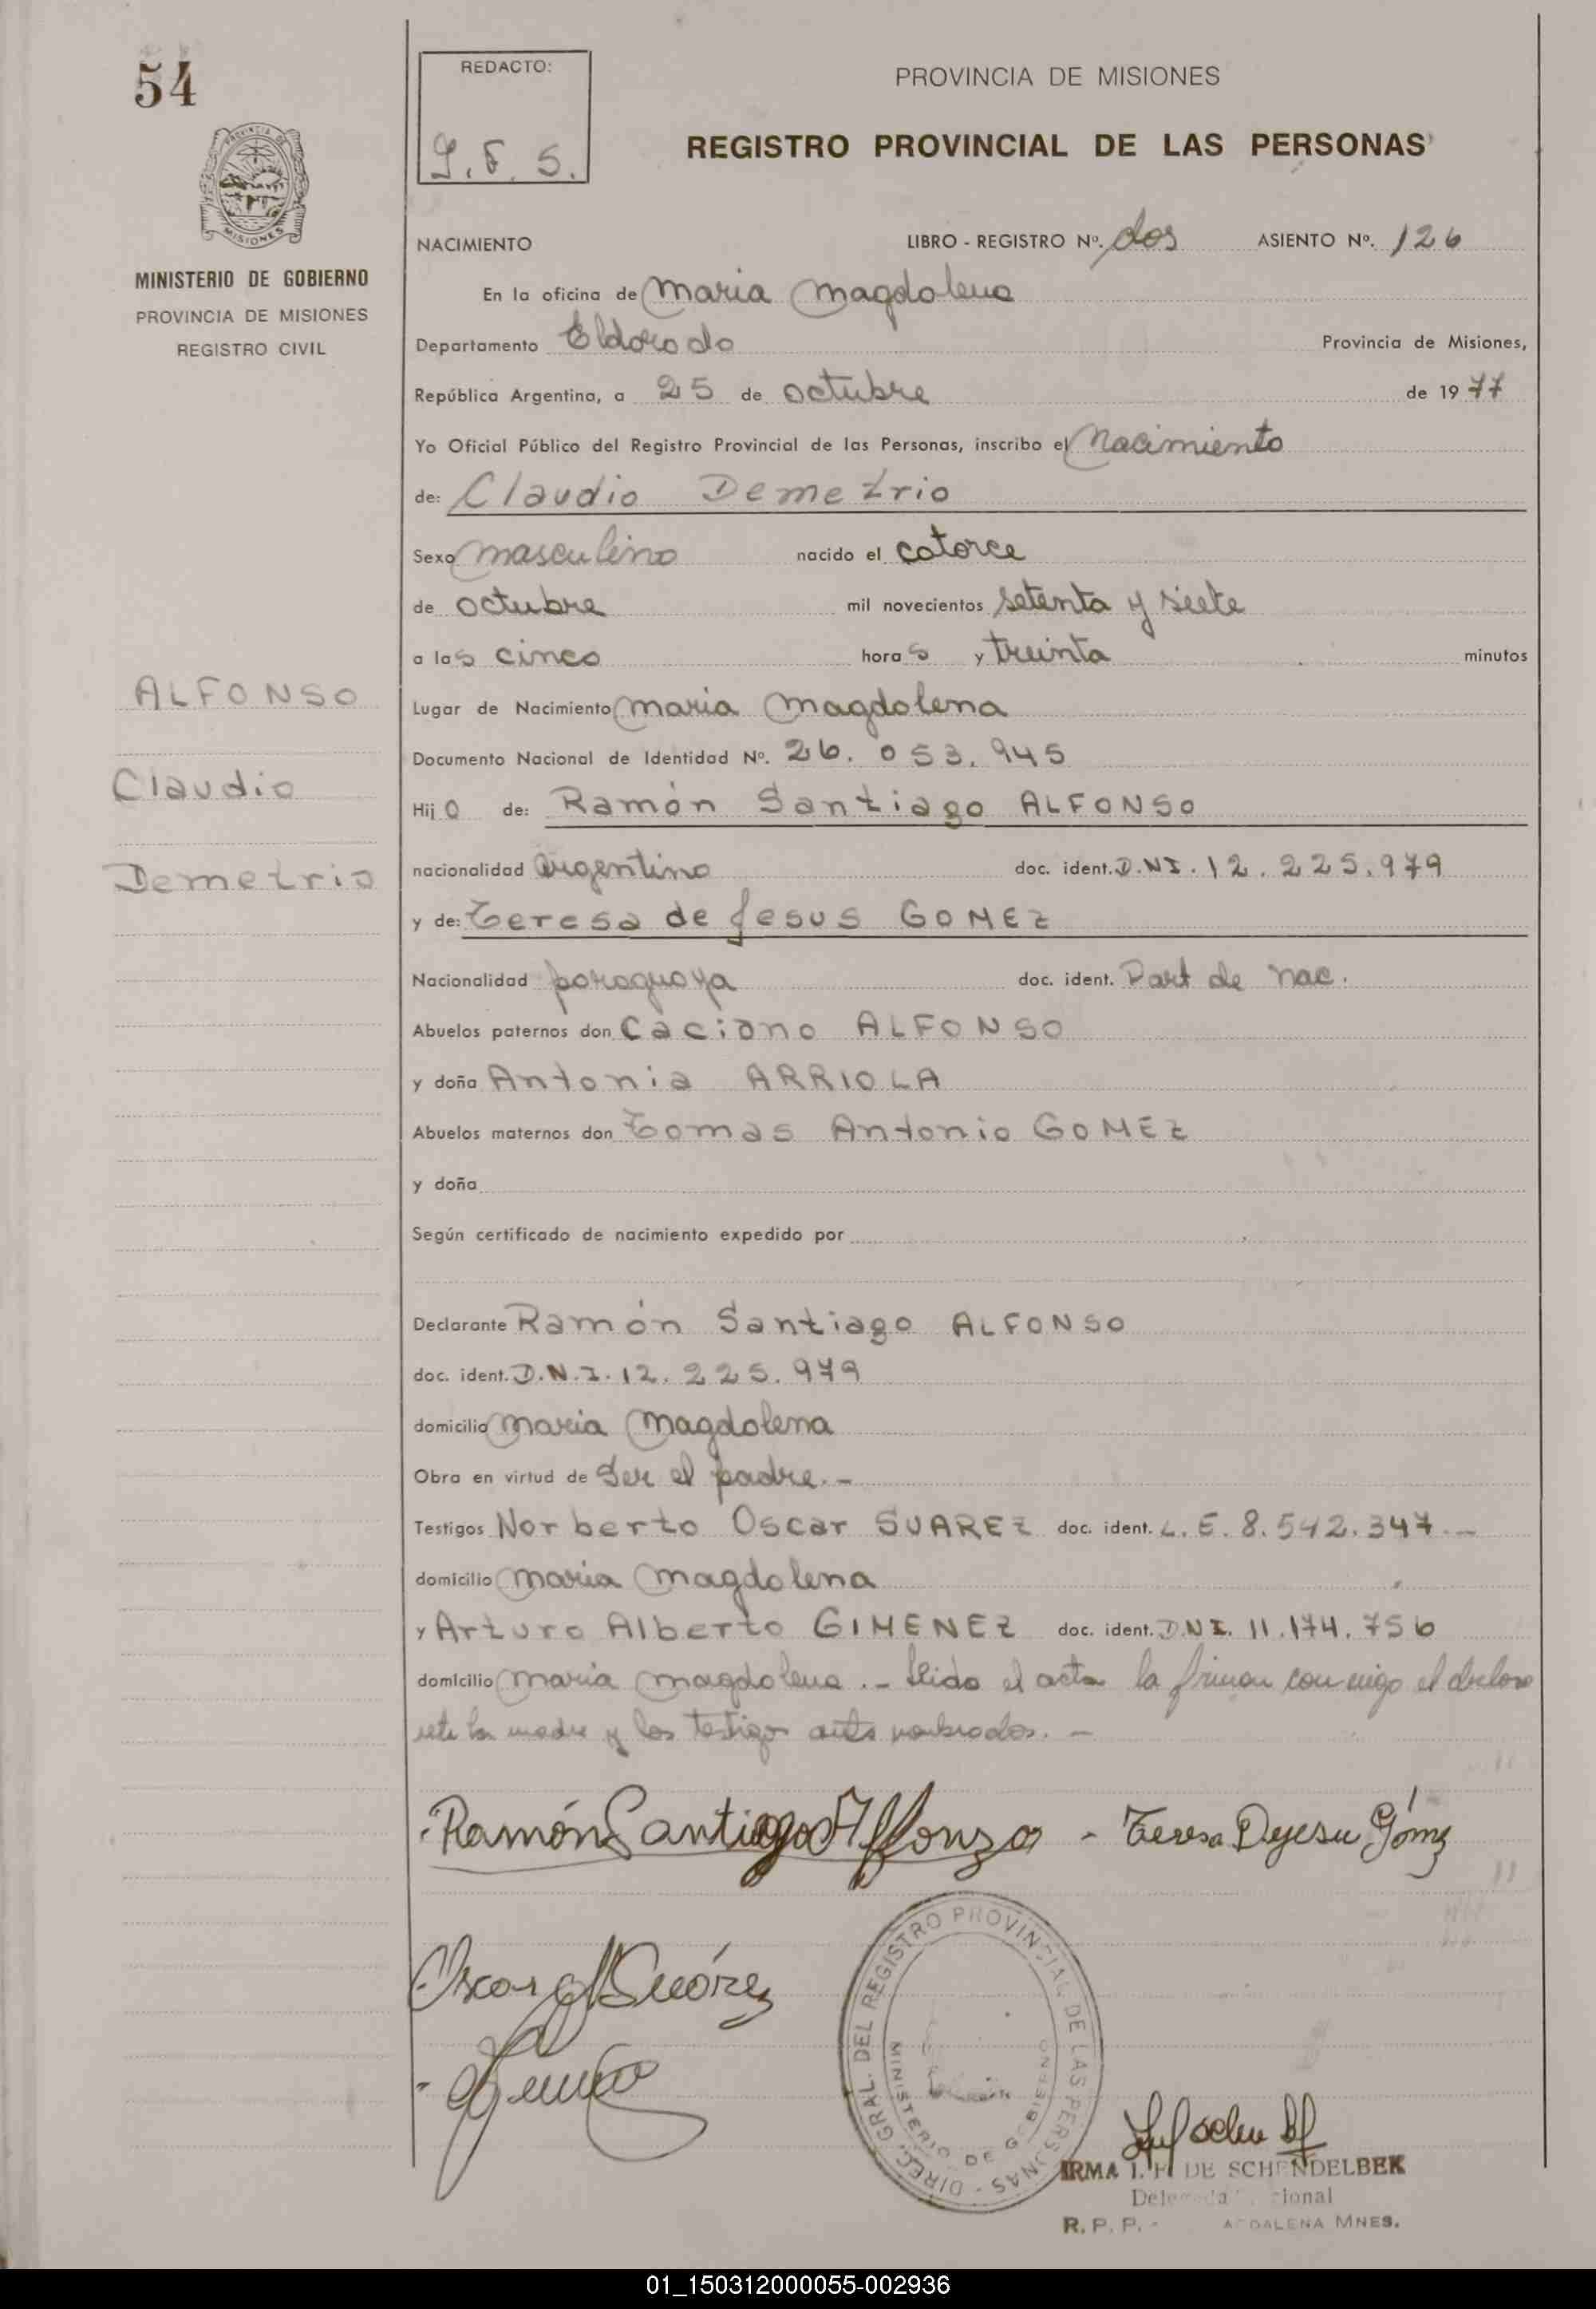 54
REDACTO:
PROVINCIA DE MISIONES
REGISTRO PROVINCIAL DE LAS PERSONAS
MISIONES
MINISTERIO DE GOBIERNO
PROVINCIA DE MISIONES
REGISTRO CIVIL
NACIMIENTO LIBRO - REGISTRO Nº. dos ASIENTO Nº. 126
En la oficina de Maria Magdalena
Departamento Eldorado Provincia de Misiones,
República Argentina, a 25 de octubre de 1977
Yo Oficial Público del Registro Provincial de las Personas, inscribo el Nacimiento
de: Claudio Demetrio
Sexo masculino nacido el catorce
de octubre mil novecientos setenta y siete
a las cinco horas y treinta minutos
ALFONSO
Claudio
Demetrio
Lugar de Nacimiento Maria Magdalena
Documento Nacional de Identidad Nº. 26.053.945
Hijo de: Ramón Santiago ALFONSO
nacionalidad argentino doc. ident. D.NI. 12.225.979
y de: Teresa de Jesus GOMEZ
Nacionalidad paraguaya doc. ident. Part de nac.
Abuelos paternos don Caciano ALFONSO
y doña Antonia ARRIOLA
Abuelos maternos don Tomas Antonio GOMEZ
y doña
Según certificado de nacimiento expedido por
Declarante Ramón Santiago ALFONSO
doc. ident. D.N.I. 12.225.979
domicilio Maria Magdalena
Obra en virtud de Ser el padre.-
Testigos Norberto Oscar SUAREZ doc. ident. L.E. 8.542.347.-
domicilio Maria Magdalena
y Arturo Alberto GIMENEZ doc. ident. D.NI. 11.174.756
domicilio Maria Magdalena.- Leida el acta la firman conmigo el declara
la madre y los testigos antes nombrados.-
Ramón Santiago Alfonzo - Teresa Dejesu Gómz
Oscar Suárez
DIREC. GRAL. DEL REGISTRO PROVINCIAL DE LAS PERSONAS
MINISTERIO DE GOBIERNO
IRMA I. F. DE SCHENDELBEK
R. P. P. - MNES.
01_150312000055-002936